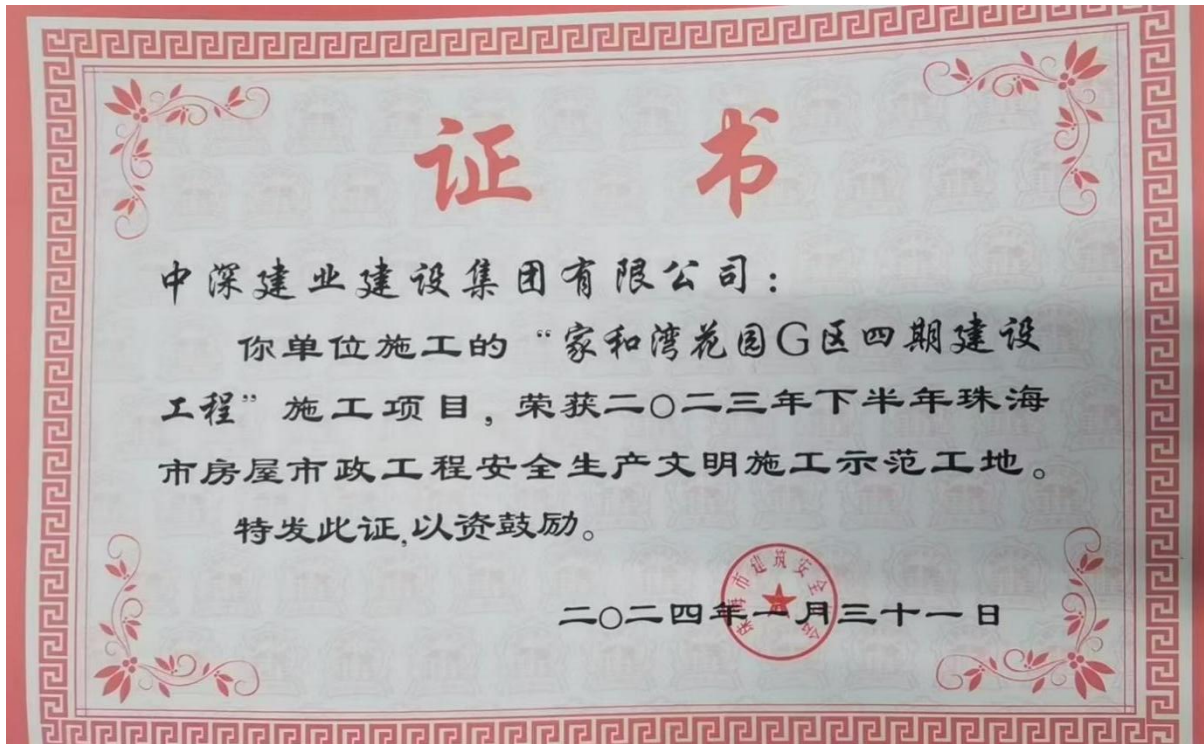 证书
中深建业建设集团有限公司：
你单位施工的“家和湾花园G区四期建设
工程”施工项目，荣获二〇二三年下半年珠海
市房屋市政工程安全生产文明施工示范工地。
特发此证,以资鼓励。
珠海市建筑安全协会
二〇二四年一月三十一日